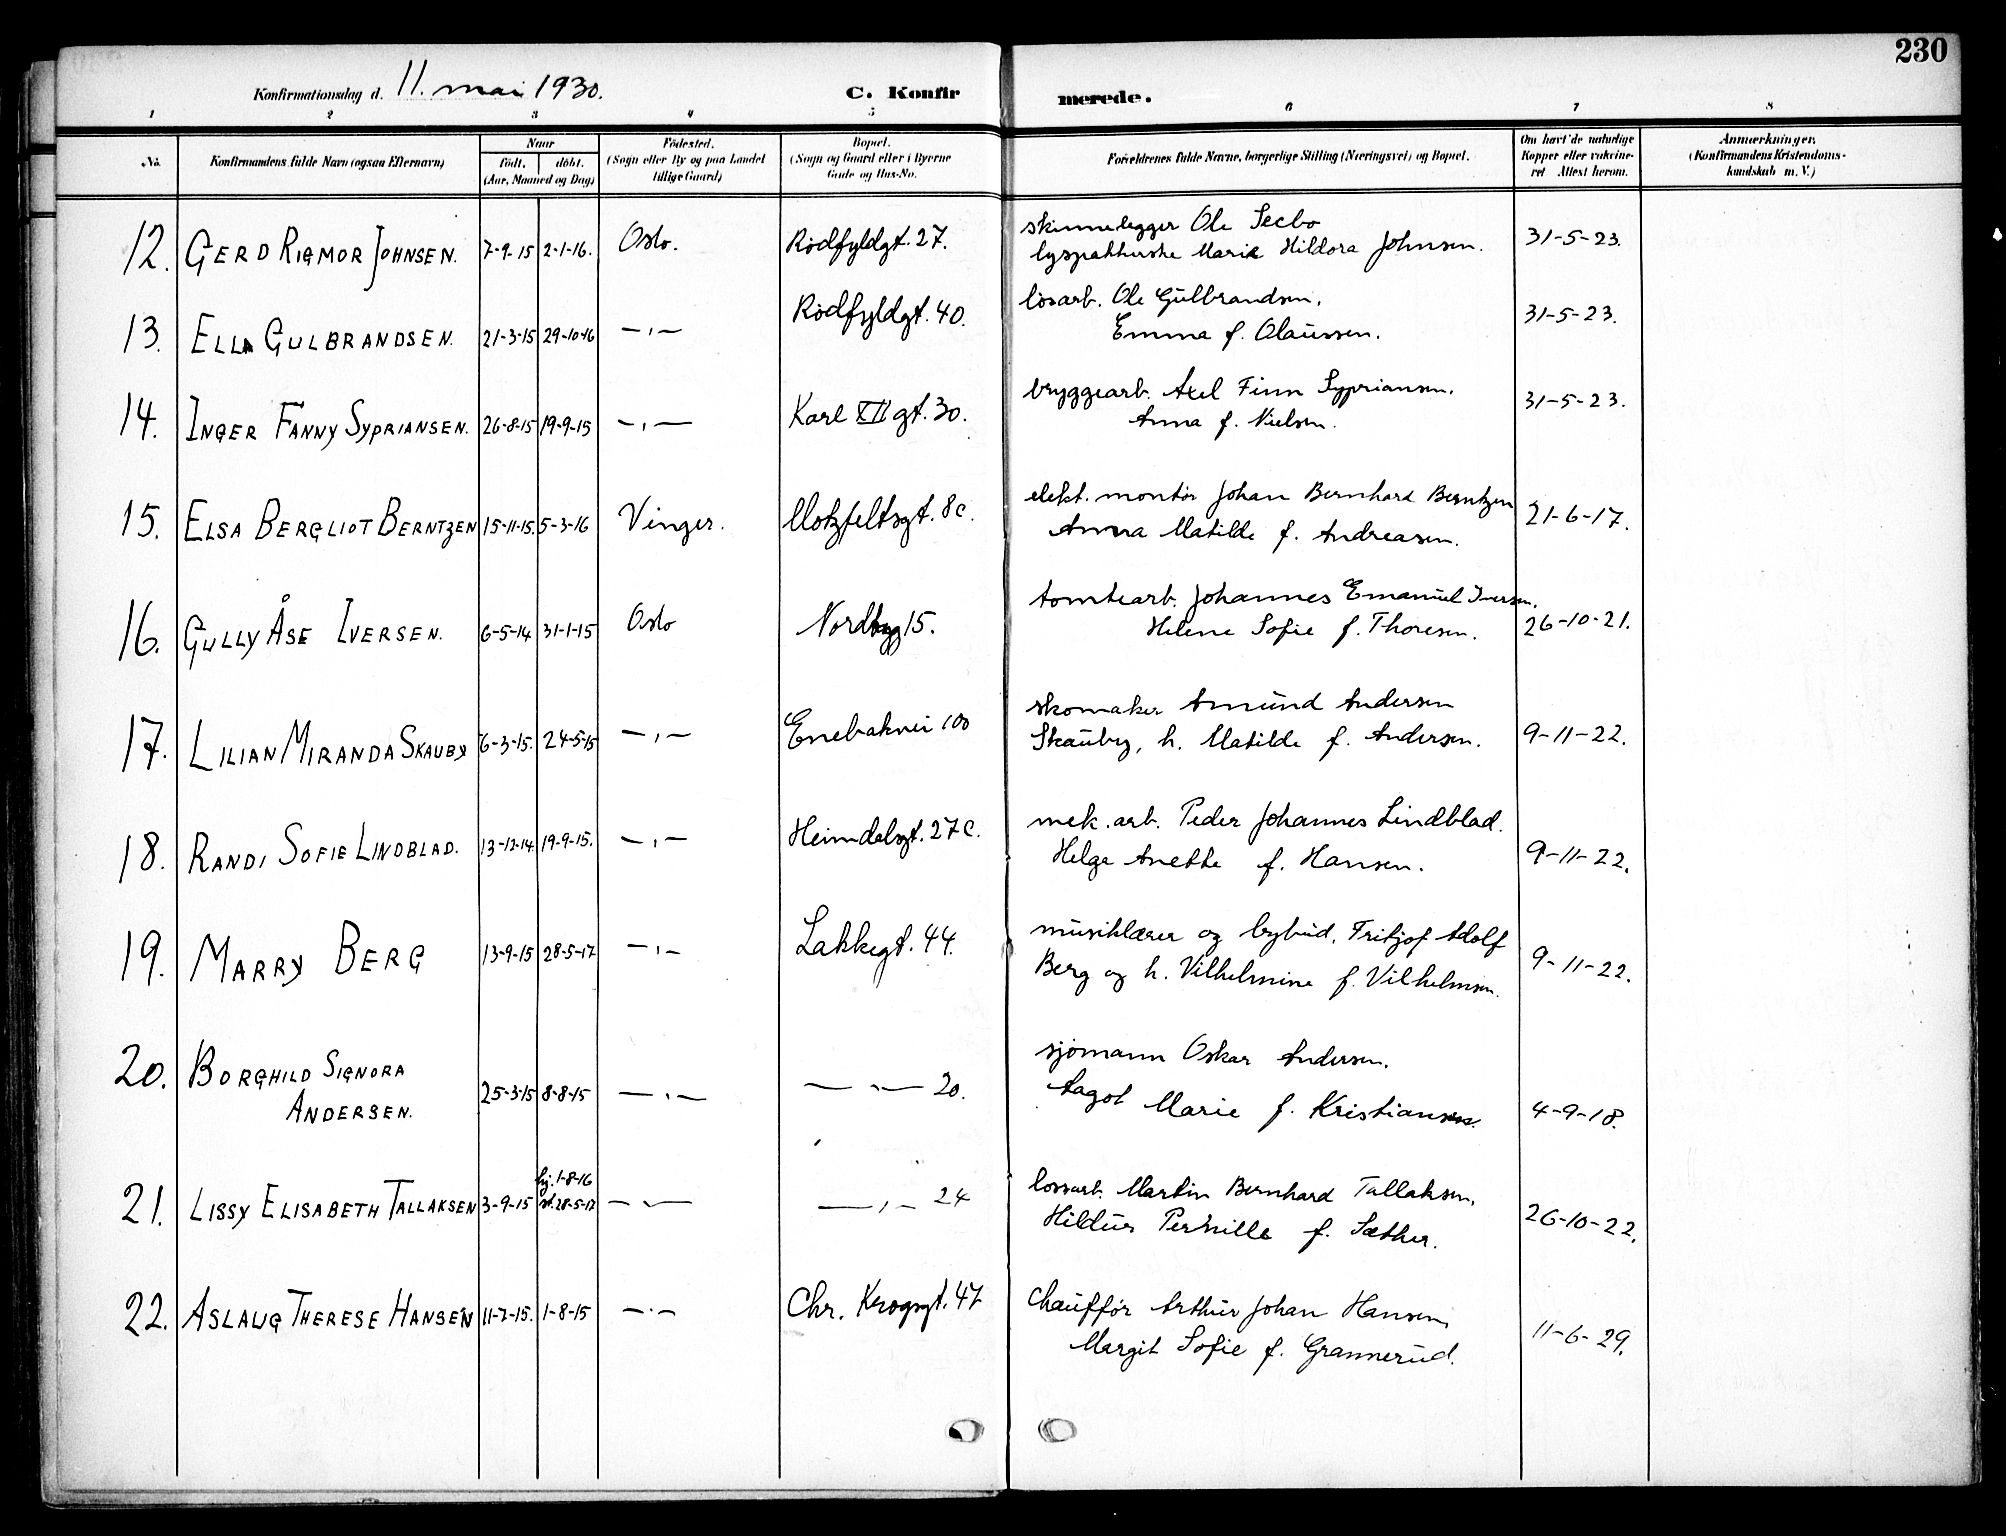 230
Konfirmationsdag d. 11. mai 1930. C. Konfirmerede.
1 2 3 4 5 6 7 8
No. Konfirmandens fulde Navn (ogsaa Efternavn) Naar født, døbt. (Aar, Maaned og Dag) Födested. (Sogn eller By og paa Landet tillige Gaard) Bopæl. (Sogn og Gaard eller i Byerne Gade og Hus-No. Forældrenes fulde Navne, borgerlige Stilling (Næringsvei) og Bopæl. Om havt de naturlige Kopper eller vakcineret Attest herom. Anmærkninger. (Konfirmandens Kristendomskundskab m. V.)
12. GERD RIGMOR JOHNSEN. 7-9-15 2-1-16. Oslo. Rødfyldgt. 27. skinnelegger Ole Seebo 31-5-23.
Marie Hildora Johnsen.
13. ELLA GULBRANDSEN. 21-3-15 29-10-16 —〃— Rødfyldgt. 40. løsarb. Ole Gulbrandsen. 31-5-23.
Emma f. Olaussen.
14. INGER FANNY SYPRIANSEN. 26-8-15 19-9-15 —〃— Karl XII gt. 30. bryggearb. Axel Finn Sypriansen. 31-5-23.
Anna f. Nielsen.
15. ELSA BERGLIOT BERNTZEN 15-11-15. 5-3-16 Vinger. Motzfeltsgt. 8c. elekt. montør Johan Bernhard Berntzen 21-6-17.
Anna Matilde f. Andreasen.
16. GULLY ÅSE IVERSEN. 6-5-14 31-1-15 Oslo Nordbyg 15. tomtearb. Johannes Emanuel Iversen.
Helene Sofie f. Thoresen. 26-10-21.
17. LILIAN MIRANDA SKAUBY 6-3-15. 24-5-15 —〃— Enebakvei 100 skomaker Amund Andersen
Skauby, h. Matilde f. Andersen. 9-11-22.
18. RANDI SOFIE LINDBLAD. 13-12-14 19-9-15. —〃— Heimdalsgt. 27c. mek. arb. Peder Johannes Lindblad.
Helga Anette f. Hansen. 9-11-22.
19. MARRY BERG 13-9-15 28-5-17 —〃— Lakkegt. 44. musiklærer og bybud, Fritjof Adolf
Berg og h. Vilhelmine f. Vilhelmsen. 9-11-22.
20. BORGHILD SIGNORA sjømann Oskar Andersen.
ANDERSEN. 25-3-15 8-8-15 —〃— —〃— 20. Aagot Marie f. Kristiansen. 4-9-18.
hj. 1-8-16
21. LISSY ELISABETH TALLAKSEN 3-9-15 st. 28-5-17 —〃— —〃— 24 lossarb. Martin Bernhard Tallaksen.
Hildur Pernille f. Sæther. 26-10-22.
22. ASLAUG THERESE HANSEN 11-7-15. 1-8-15 —〃— Chr. Krogsgt. 47 Chauffør Arthur Johan Hansen
Margit Sofie f. Grannerud. 11-6-29.